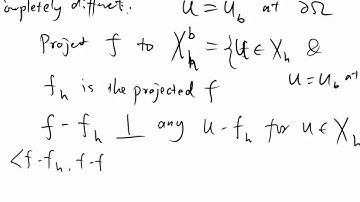 completely different. u = u_b at ∂Ω
Project f to X_h^b = {u ∈ X_h &
u = u_b at
f_h is the projected f
f - f_h ⊥ any u - f_h for u ∈ X_h
<f - f_h, f - f